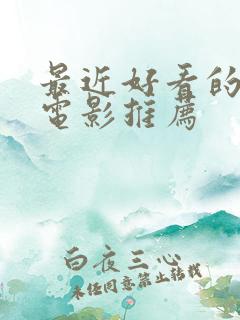 最近好看的
電影推薦
白夜三心
未經同意禁止轉載